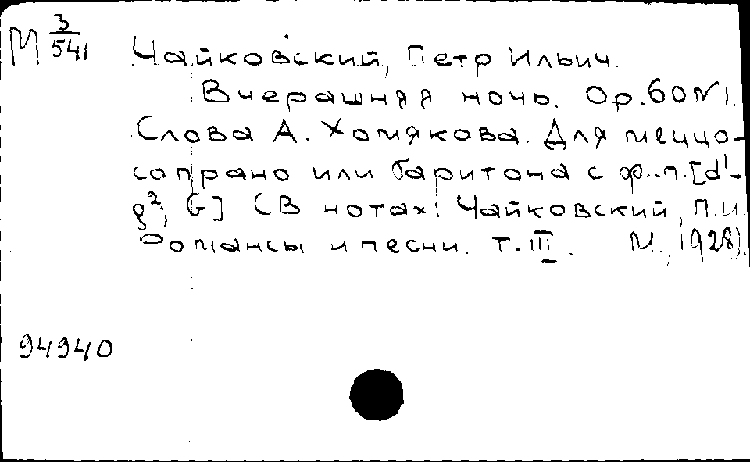 М 3/541
Чайковский, Петр Ильич.
Вчерашняя ночь. Op. 60 N 1.
Слова А. Хомякова. Для меццо-
сопрано или баритона с ф.-п. [d¹-
g², G] (В нотах: Чайковский, П.И.
Романсы и песни. Т. III. М., 1928).
94940